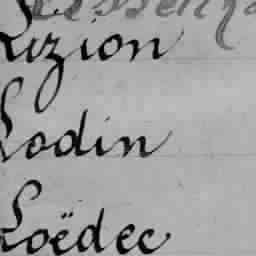 Lizion
Lodin
Loëdec